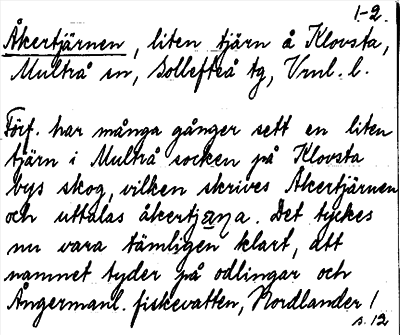 1-2.
Åkertjärnen, liten tjärn å Klovsta,
Multrå sn, Sollefteå tg, Vrnl. l.
Förf. har många gånger sett en liten
tjärn i Multrå socken på Klovsta
bys skog, vilken skrives Åkertjärnen
och uttalas åkertjäṇa. Det tyckes
nu vara tämligen klart, att
namnet tyder på odlingar och
Ångermanl. fiskevatten, Nordlander 1
s. 12